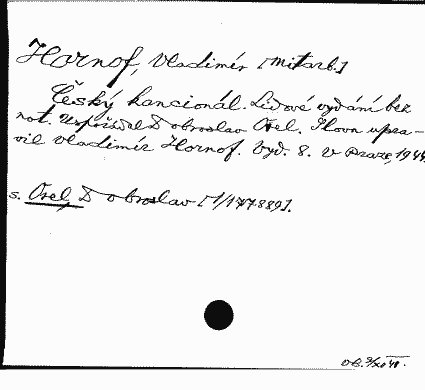 Hornof, Vladimír [Mitarb.]
Český kancionál. Lidové vydání bez
not. Uspořádal Dobroslav Orel. Slova upra-
vil Vladimír Hornof. Vyd. 8. v Praze, 1944
s. Orel, Dobroslav [1/177889].